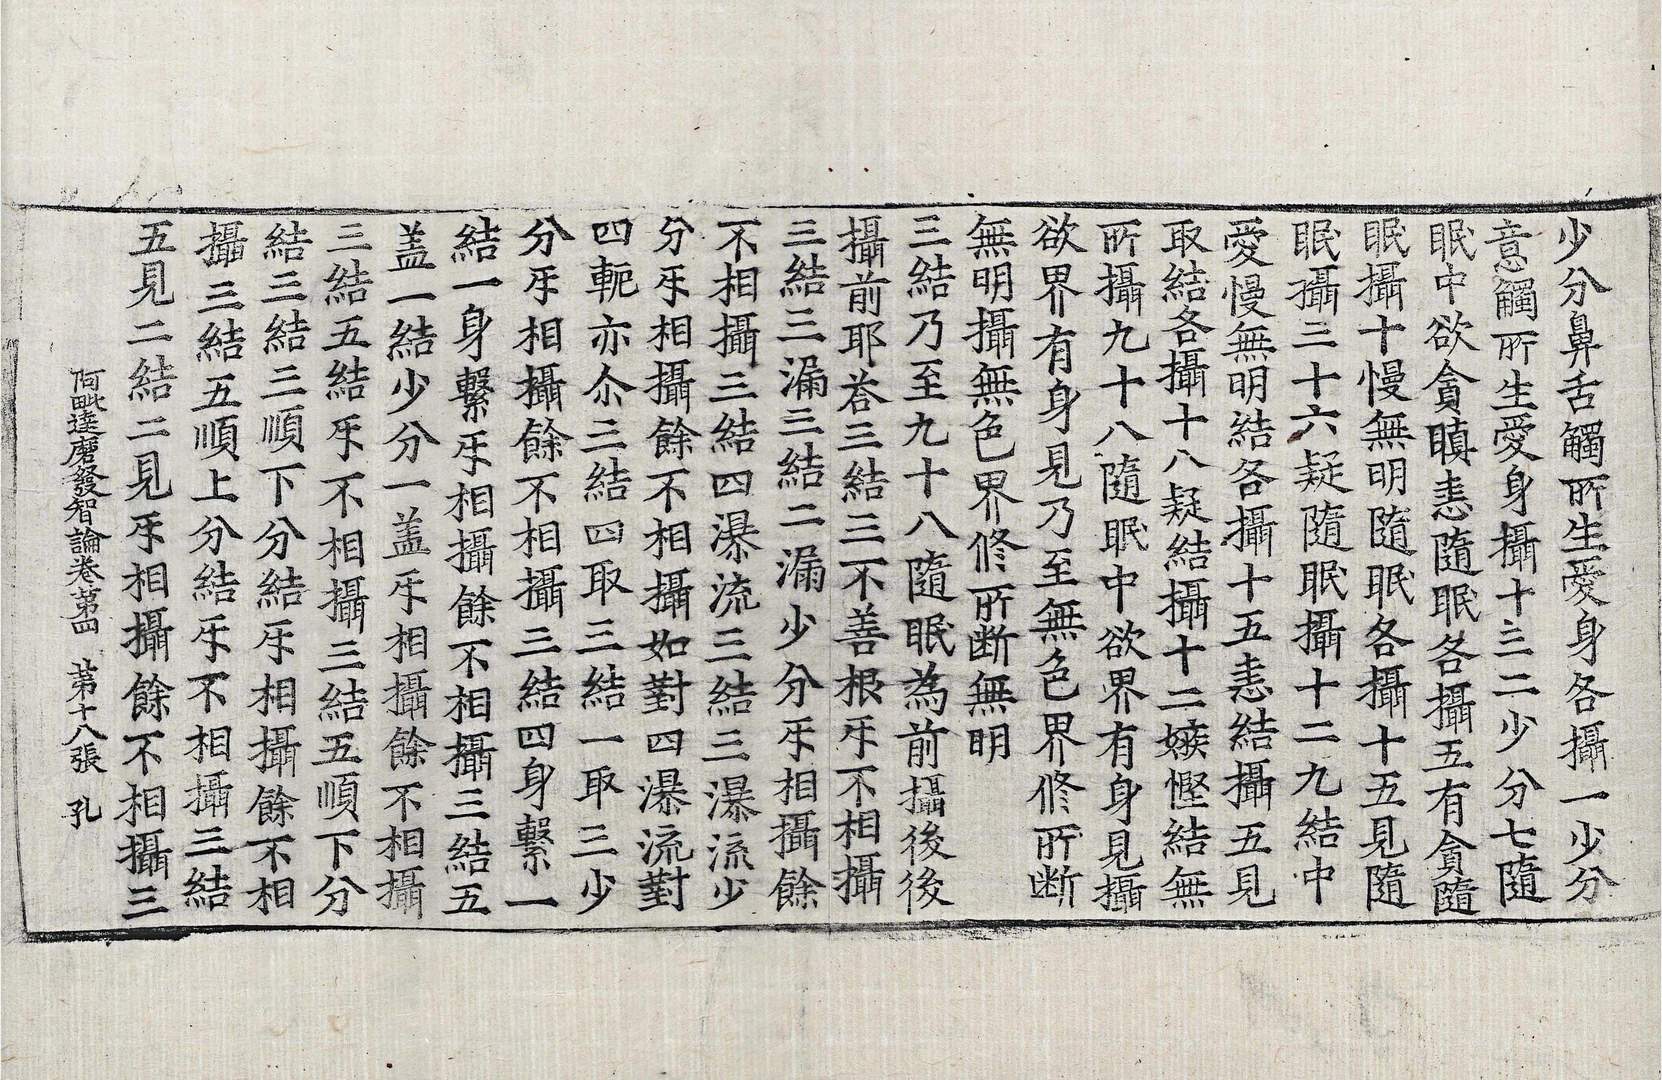 少分鼻舌觸所生愛身各攝一少分
意觸所生愛身攝十三二少分七隨
眠中欲貪瞋恚隨眠各攝五有貪隨
眠攝十慢無明隨眠各攝十五見隨
眠攝三十六疑隨眠攝十二九結中
愛慢無明結各攝十五恚結攝五見
取結各攝十八疑結攝十二嫉慳結無
所攝九十八隨眠中欲界有身見攝
欲界有身見乃至無色界修所断
無明攝無色界修所断無明
三結乃至九十八隨眠為前攝後後
攝前耶荅三結三不善根㸦不相攝
三結三漏三結二漏少分㸦相攝餘
不相攝三結四瀑流三結三瀑流少
分㸦相攝餘不相攝如對四瀑流對
四軛亦尒三結四取三結一取三少
分㸦相攝餘不相攝三結四身繫一
結一身繫㸦相攝餘不相攝三結五
盖一結少分一盖㸦相攝餘不相攝
三結五結㸦不相攝三結五順下分
結三結三順下分結㸦相攝餘不相
攝三結五順上分結㸦不相攝三結
五見二結二見㸦相攝餘不相攝三
阿毗達磨發智論卷第四 第十八張 孔